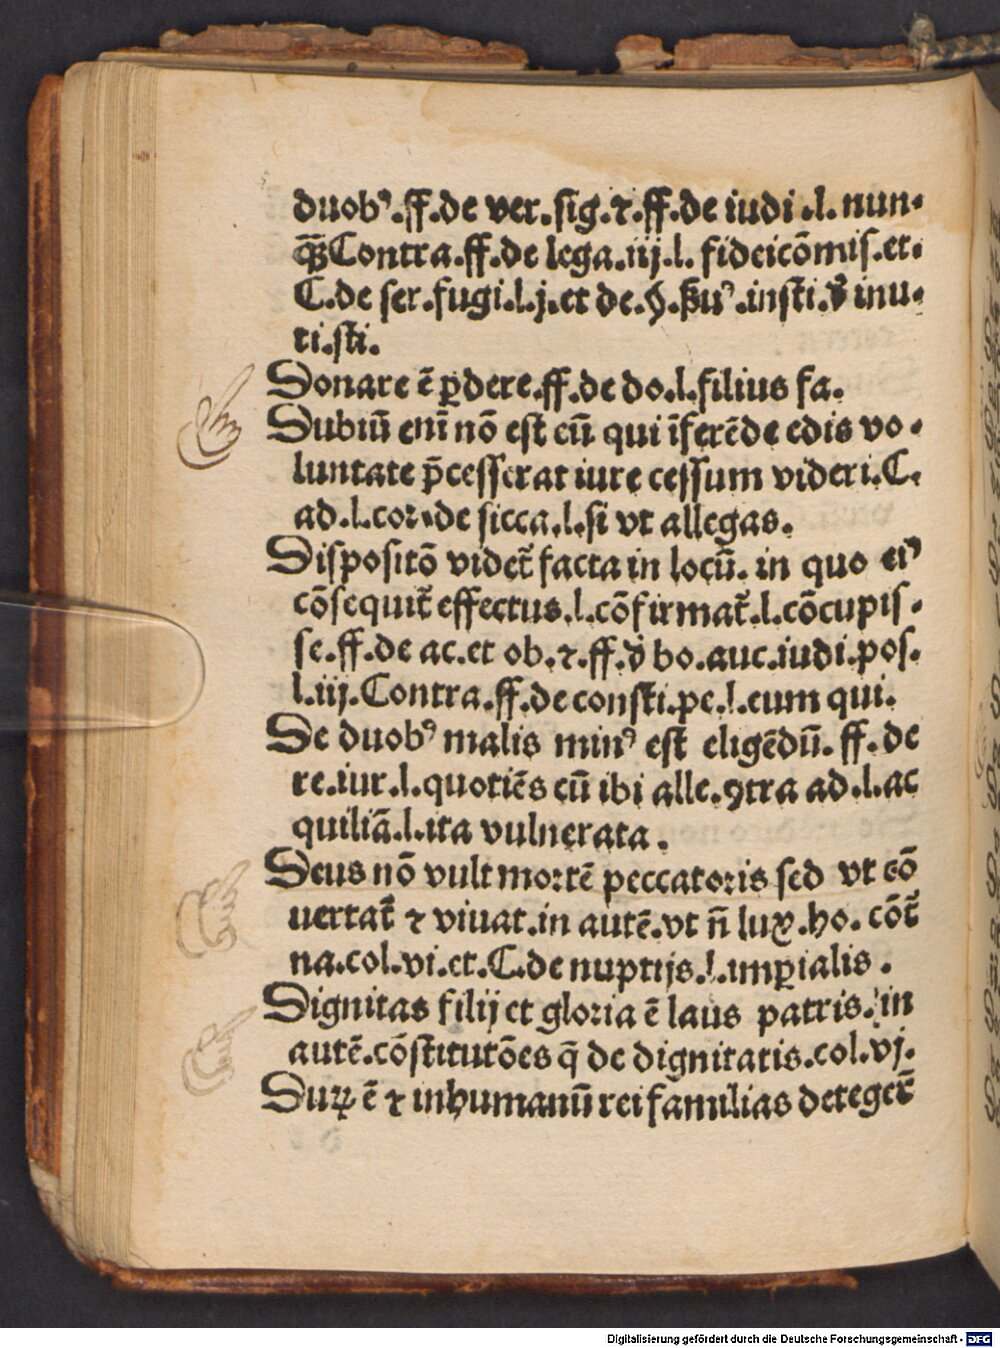 duobꝰ.ff.de ver.sig.⁊.ff.de iudi.l.nun-
qᷓꝫ Contra.ff.de lega.iij.l. fideicōmis.et.
C.de ser.fugi.l.j.et de. insti. inu-
ti.sti.
Donare ē ꝑdere.ff.de do.l.filius fa.
Dubiū enī nō est eū qui īferēde edis vo-
luntate p̄cesserat iure cessum videri.C.
ad.l.cor.de sicca.l.si vt allegas.
Dispositō videt᷑ facta in locū. in quo eiꝰ
cōsequit᷑ effectus.l.cōfirmat᷑.l.cōcupis-
se.ff.de ac.et ob.⁊.ff.d̕ bo.auc.iudi.pos.
l.iij.Contra.ff.de consti.pe.l.eum qui.
De duobꝰ malis minꝰ est eligēdū. ff.de
re.iur.l.quotiēs cū ibi alle.ꝯtra ad.l.ac
quiliā.l.ita vulnerata.
Deus nō vult mortē peccatoris sed vt cō
uertat᷑ ⁊ viuat.in autē.vt n̄ luxꝝ.ho. cōt᷑
na.col.vi.et.C.de nuptijs.l.imꝑialis.
Dignitas filij et gloria ē laus patris. in
autē.cōstitutōes q̄ de dignitatis.col.vj.
Duꝝ ē ⁊ inhumanū rei familias deteger̄
Digitalisierung gefördert durch die Deutsche Forschungsgemeinschaft - DFG